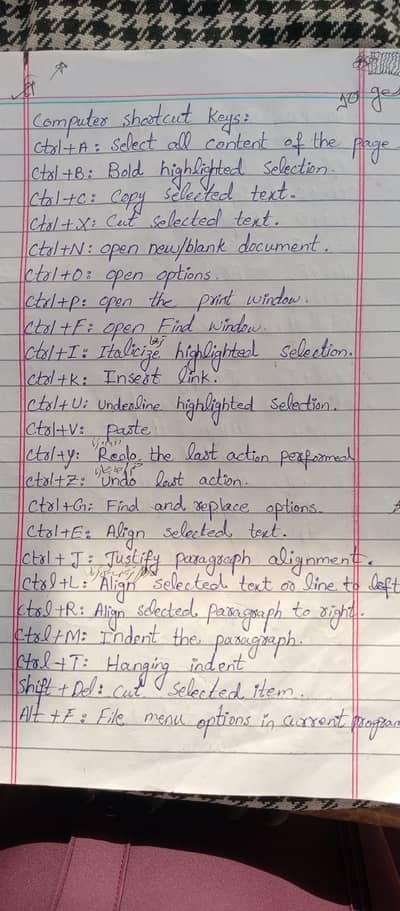 to ge
Computer shortcut keys:
Ctrl+A: Select all content of the page
Ctrl+B: Bold highlighted selection.
Ctrl+C: Copy selected text.
Ctrl+X: Cut selected text.
Ctrl+N: open new/blank document.
Ctrl+O: open options.
Ctrl+P: open the print window.
Ctrl+F: open Find window.
Ctrl+I: Italicize highlighted selection.
Ctrl+K: Insert link.
Ctrl+U: Underline highlighted selection.
Ctrl+V: Paste
Ctrl+Y: Redo the last action performed
Ctrl+Z: Undo last action.
Ctrl+G: Find and replace options.
Ctrl+E: Align selected text.
Ctrl+J: Justify paragraph alignment.
Ctrl+L: Align selected text or line to left
Ctrl+R: Align selected paragraph to right.
Ctrl+M: Indent the paragraph.
Ctrl+T: Hanging indent
Shift+Del: Cut selected item.
Alt+F: File menu options in current program